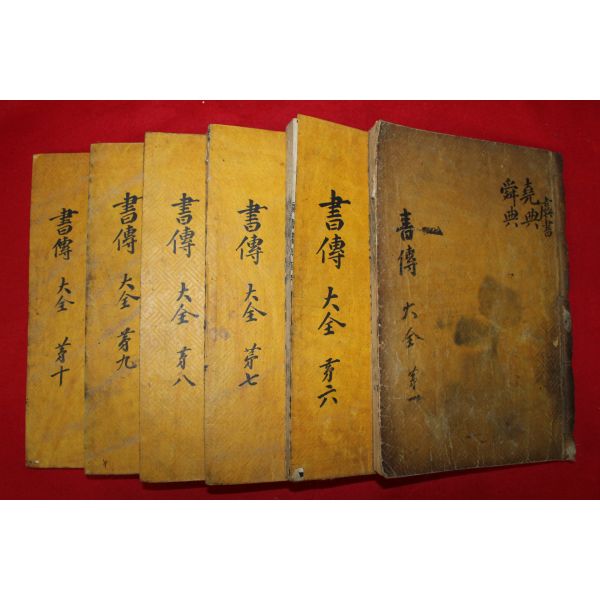 虞書
堯典
舜典
書傳 大全 苐一
書傳 大全 苐六
書傳 大全 苐七
書傳 大全 苐八
書傳 大全 苐九
書傳 大全 苐十